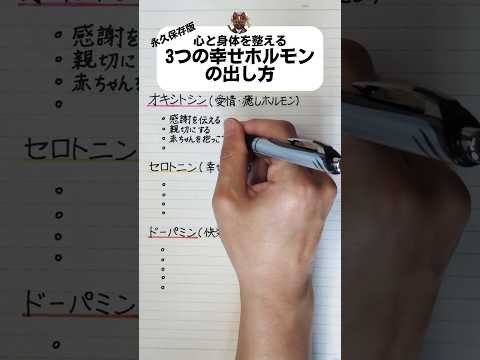 永久保存版
心と身体を整える
3つの幸せホルモン
の出し方
感謝
親切に
赤ちゃん
オキシトシン(愛情・癒しホルモン)
感謝を伝える
親切にする
赤ちゃんを抱っこ
セロトニン(幸せ
ドーパミン(快
ドーパミン